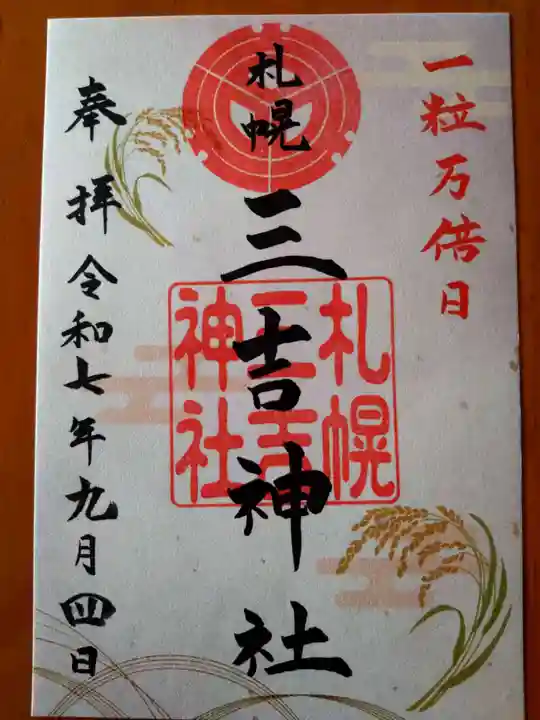 一粒万倍日
札幌
三吉神社
札幌
三吉
神社
奉拝令和七年九月四日